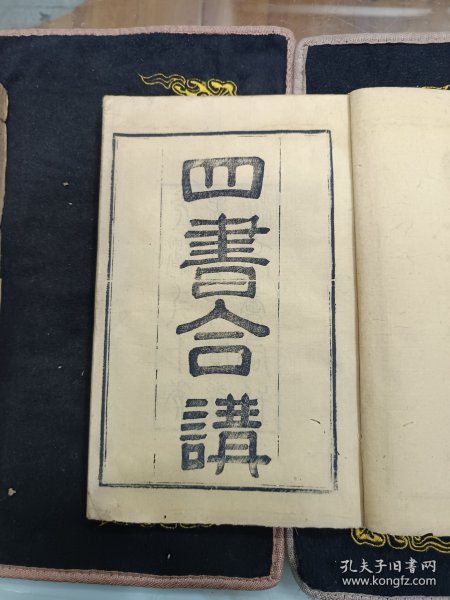 四書合講
孔夫子旧书网
www.kongfz.com